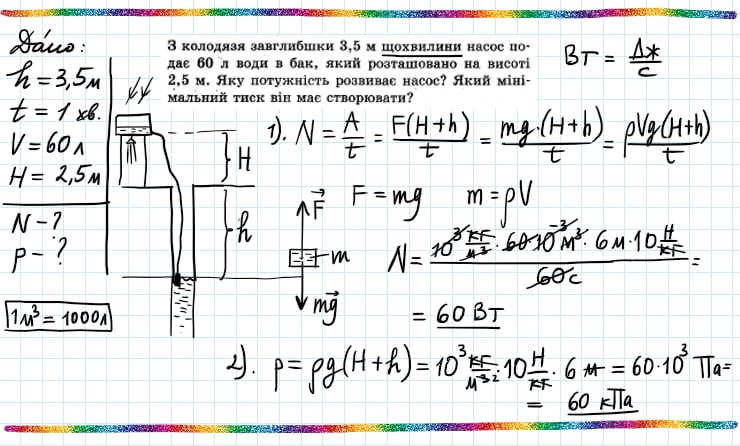 Дано:
h = 3,5 м
t = 1 хв.
V = 60 л
H = 2,5 м
N - ?
p - ?
1 м³ = 1000 л
З колодязя завглибшки 3,5 м щохвилини насос по-
дає 60 л води в бак, який розташовано на висоті
2,5 м. Яку потужність розвиває насос? Який міні-
мальний тиск він має створювати?
Вт = Дж/с
H
h
F⃗
m
mg⃗
1). N = A/t = F(H+h)/t = mg·(H+h)/t = ρVg(H+h)/t
F = mg m = ρV
N = 10³ кг/м³ · 60·10⁻³ м³ · 6 м · 10 Н/кг / 60 с =
= 60 Вт
2). p = ρg(H+h) = 10³ кг/м³² · 10 Н/кг · 6 м = 60·10³ Па =
= 60 кПа